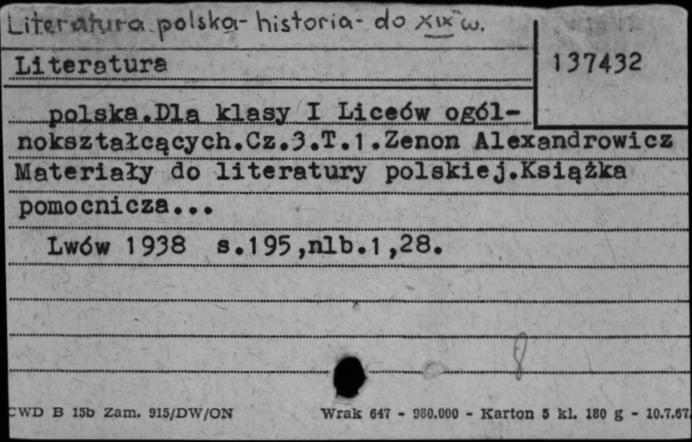 Literatura polska - historia - do XIX w.
Literatura
137432
polska.Dla klasy I Liceów ogól-
nokształcących.Cz.3.T.1.Zenon Alexandrowicz
Materiały do literatury polskiej.Książka
pomocnicza...
Lwów 1938 s.195,nlb.1,28.
8
CWD B 15b Zam. 915/DW/ON
Wrak 647 - 980.000 - Karton 5 kl. 180 g - 10.7.67